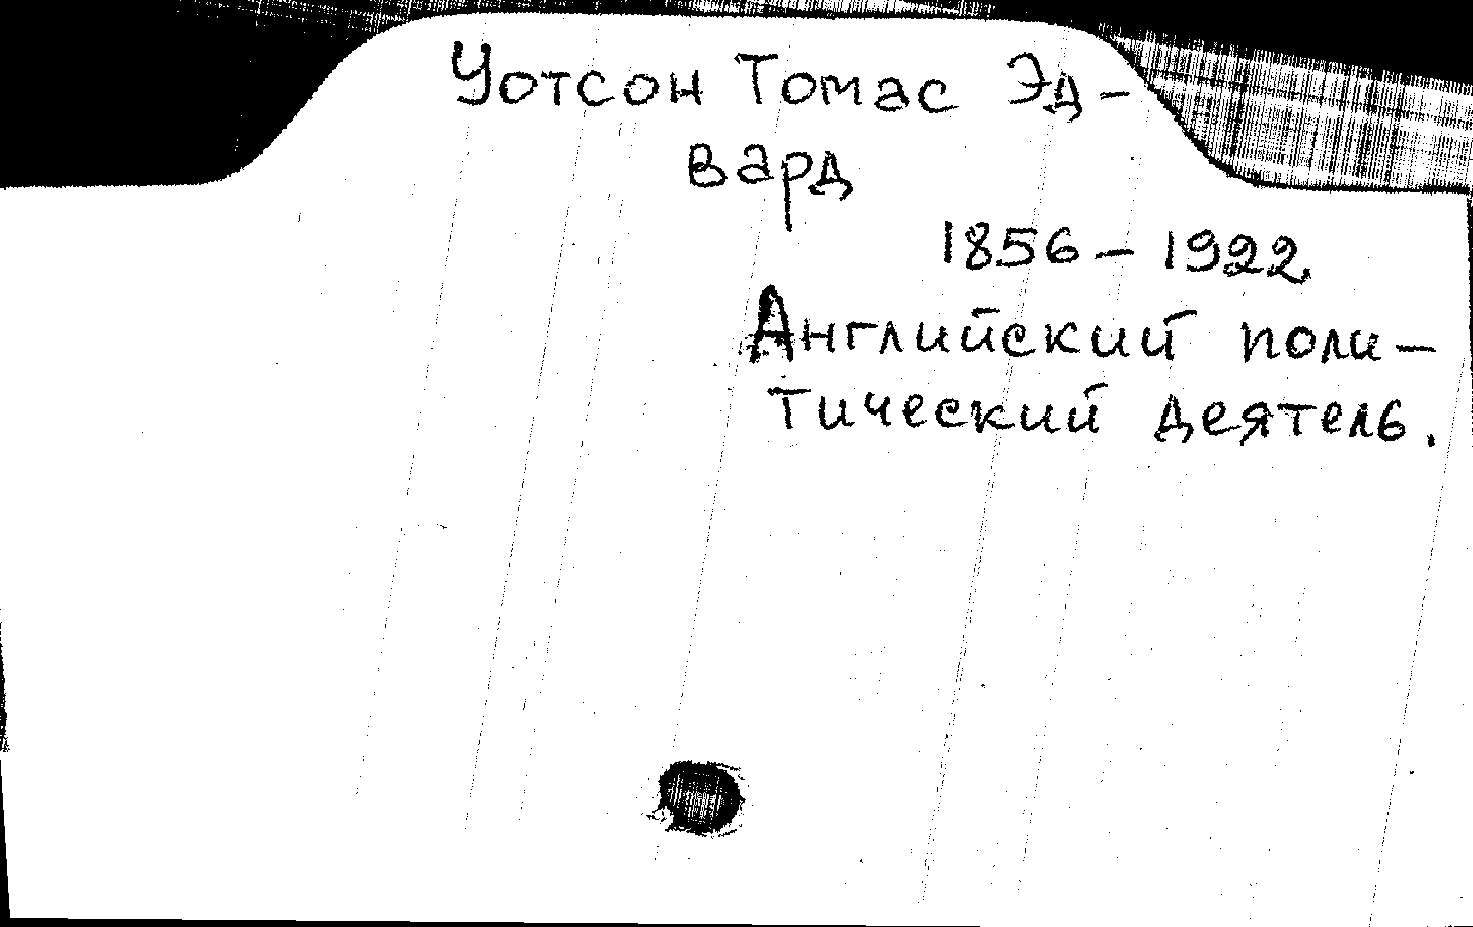 Уотсон Томас Эд-
вард
1856 – 1922
Английский поли-
тический деятель.